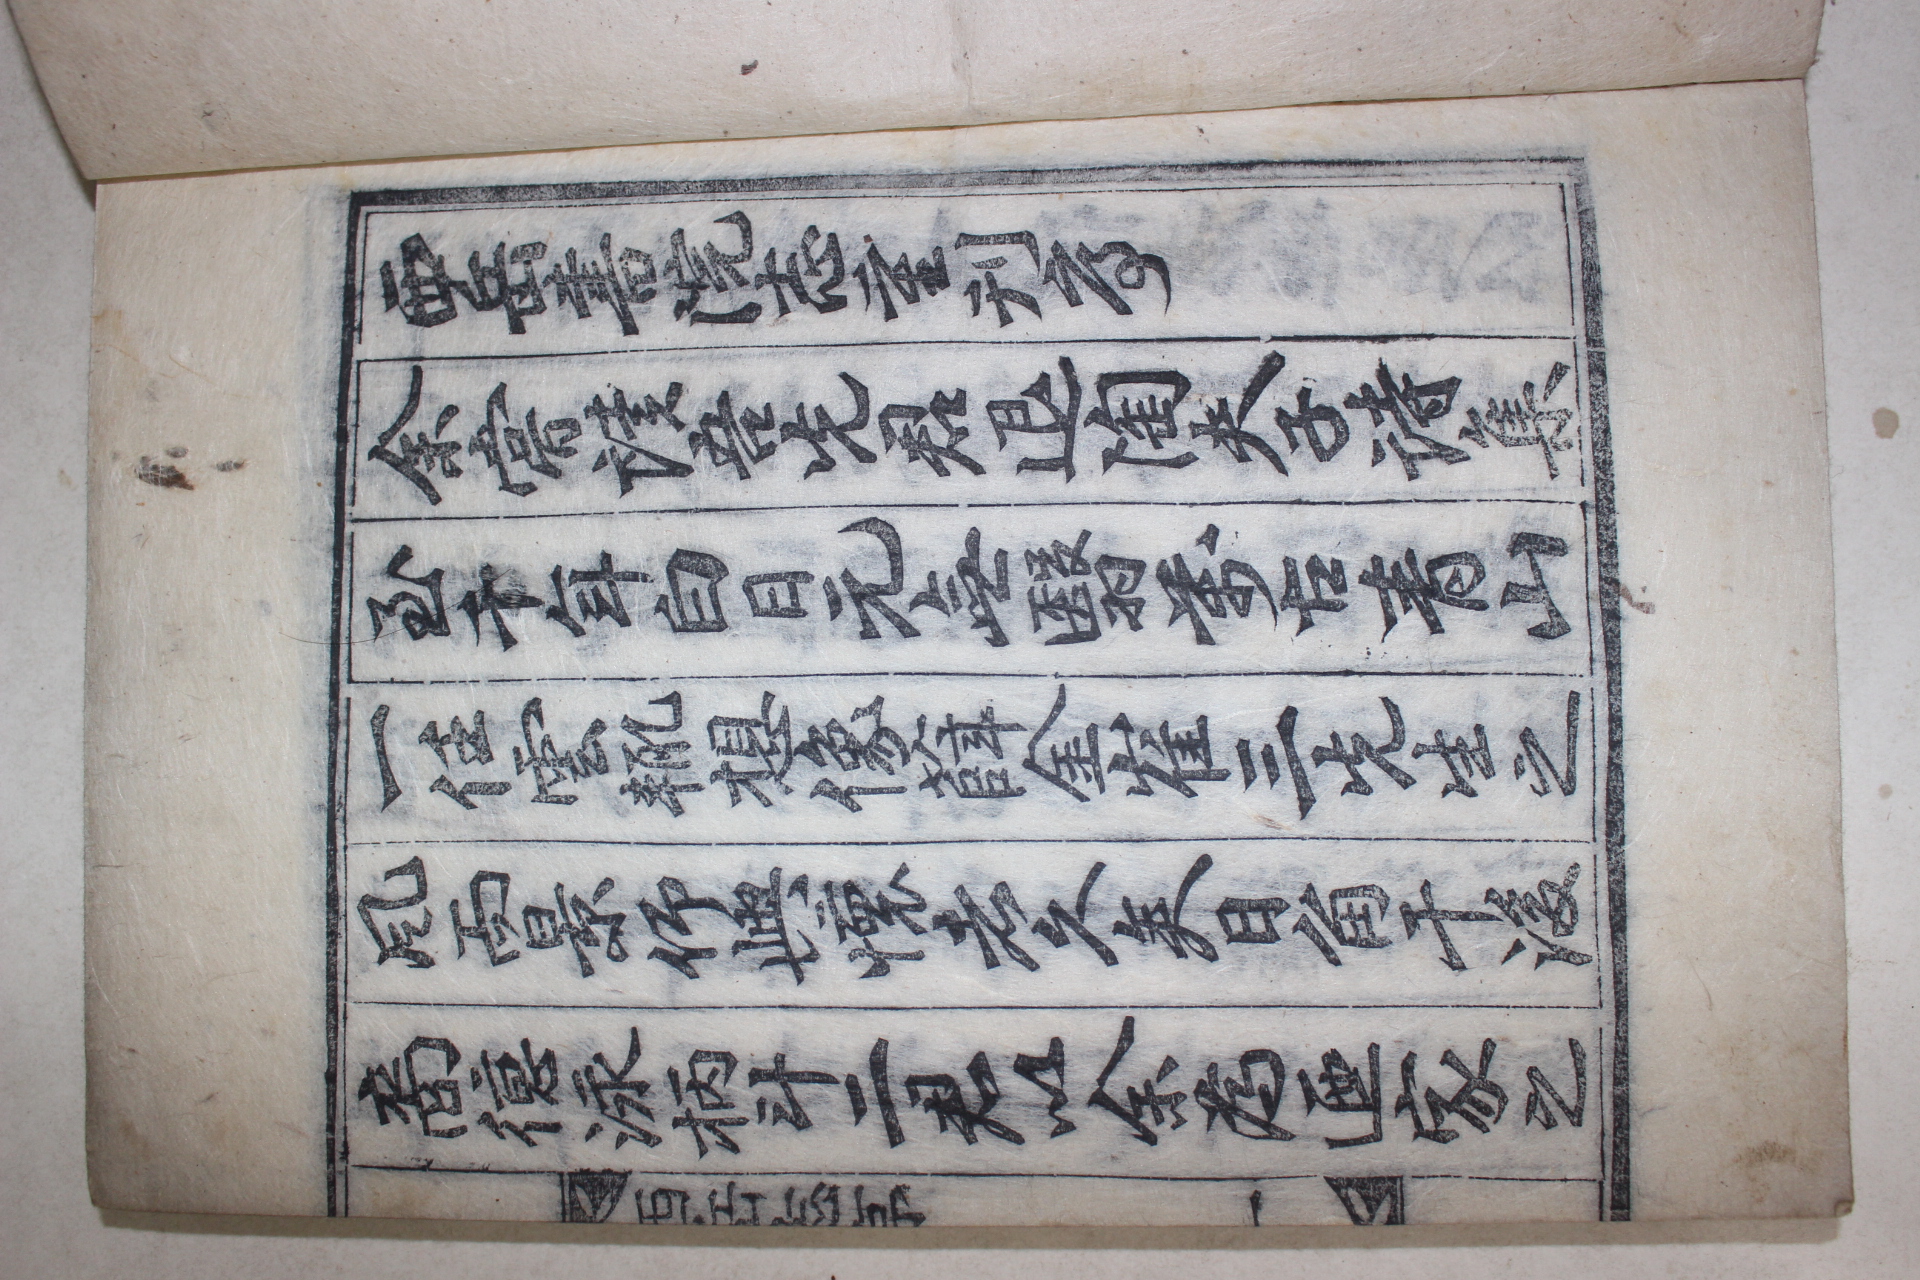 西岳書院志重刊序
余嘗讀吾先君退陶夫子詩集
至千年白日元無翳萬古青山
一任雲輒想像薛金崔三先生之
風而景仰興懷者久矣日甬千後
裔德泳柄斗二君以余爲迺家之
一